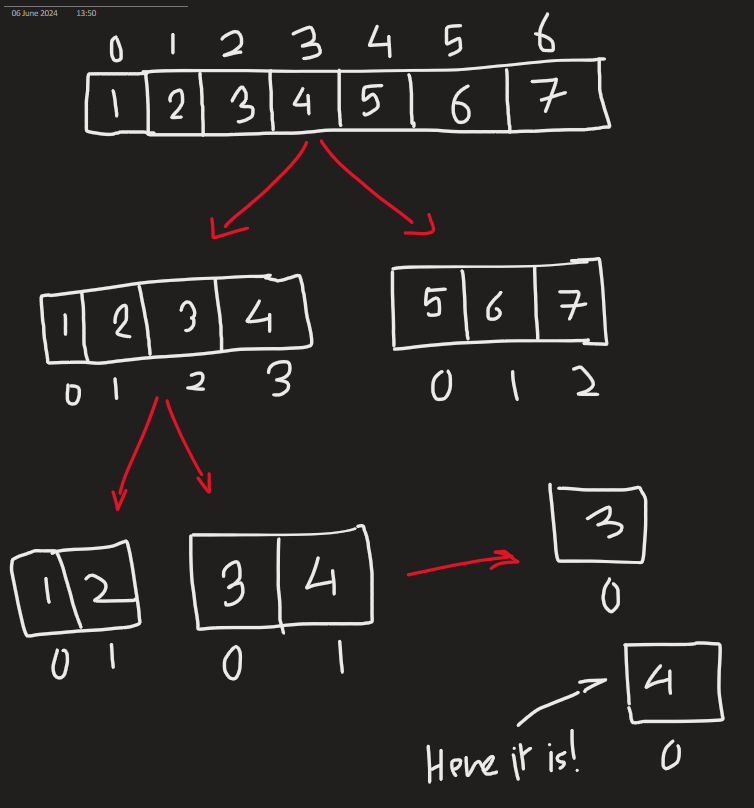 06 June 2024 13:50
0 1 2 3 4 5 6
1 2 3 4 5 6 7
1 2 3 4
0 1 2 3
5 6 7
0 1 2
1 2
0 1
3 4
0 1
3
0
4
0
Here it is!